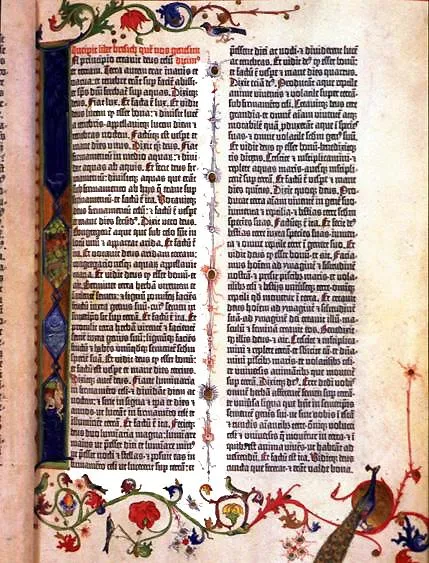 Incipit liber bresich quē nos genesim
A principio creavit deus celū dicim⁹
et terram. Terra autem erat inanis et
vacua: et tenebre erāt sup faciē abissi:
et sp̄s dn̄i ferebat̄ sup aquas. Dixitq̄
deus. Fiat lux. Et facta ē lux. Et vidit
deus lucem q̄ esset bona: et divisit lucē
a tenebris · appellavitq̄ lucem diem et
tenebras noctem. Factūq̄ est vespe et
mane dies unus. Dixit q̄ deus. Fiat
firmamentū in medio aquaꝝ: et divi-
dat aquas ab aquis. Et fecit deus fir-
mamentū: divisitq̄ aquas que erāt
sub firmamento ab hijs q̄ erant sup
firmamentū: et factū ē ita. Vocavitq̄
deus firmamentū celū: et factū ē vespe
et mane dies secūd⁹. Dixit vero deus.
Congregent̄ aque que sub celo sūt in
locū unū et appareat arida. Et factū ē
ita. Et vocavit deus aridam terram:
congregacōesq̄ aquaꝝ appellavit
maria. Et vidit deus q̄ esset bonū · et
ait. Germinet terra herbā virentem et
facientē semen: et lignū pomifeꝝ faciēs
fructū iuxta genus suū · cui⁹ semen in
semetipō sit sup terrā. Et factū ē ita. Et
protulit terra herbā virentē et facientē
semē iuxta genus suū: lignūq̄ faciēs
fructū et habēs unūqdq̄ semētē scdm
speciē suā. Et vidit deus q̄ esset bonū:
et factū est vespe et mane dies tercius.
Dixitq̄ aut̄ deus. Fiant luminaria
in firmamēto celi · et dividāt diem ac
noctem: et sint in signa et tp̄a et dies et
annos: ut luceāt in firmamēto celi et
illuminēt terrā. Et factū ē ita. Fecitq̄
deus duo luminaria magna: lumiāre
maius ut p̄esset diei et lumiāre min⁹
ut p̄esset nocti: et stellas · et posuit eas in
firmamēto celi ut lucerent sup terrā: et
p̄essent diei ac nocti · et dividerent lucē
ac tenebras. Et vidit de⁹ q̄ esset bonū:
et factū ē vespe et mane dies quartus.
Dixit etiā de⁹. Producant aque reptile
anime viventis et volatile super terrā ·
sub firmamēto celi. Creavitq̄ deus cete
grandia · et omnē aīam viventē atq̄
motabilē quā p̄duxerāt aque ī species
suas · et omne volatile secundū gen⁹ suū.
Et vidit deus q̄ esset bonū · benedixitq̄
eis dicens. Crescite et multiplicamini · et
replete aquas maris · avesq̄ multipli-
cent̄ sup terrā. Et factū ē vespe et mane
dies quintus. Dixit quoq̄ deus. Pro-
ducat terra aīam viventē in gene̅ suo ·
iumenta et reptilia · et bestias terre scdm
species suas. Factūq̄ ē ita. Et fecit de⁹
bestias terre iuxta species suas · iumen-
ta et omne reptile terre ī genere suo. Et
vidit deus q̄ esset bonū · et ait. Facia-
mus hoīem ad ymaginē et similitudinē
nostrā · et p̄sit piscib⁹ maris · et vola-
tilib⁹ celi et bestijs universeq̄ terre · omniq̄
reptili qd movetur in terra. Et creavit
deus hoīem ad ymaginē et similitudinē
suā · ad ymaginē dei creavit illū · ma-
sculū et feminā creavit eos. Benedixitq̄
illis deus · et ait. Crescite et multiplica-
mini et replete terrā · et subicite eā · et dn̄a-
mini piscib⁹ maris · et volatilib⁹ celi ·
et universis animātib⁹ que moventur
sup terrā. Dixitq̄ de⁹. Ecce dedi vobis
omnē herbā afferentē semen sup terrā ·
et universa ligna que hn̄t in semetipīs
sementē genīs sui · ut sint vobis ī escā
et cunctis aīantib⁹ terre · omniq̄ volucri
celi et universis q̄ moventur in terra · et ī
quib⁹ est anima vivēs · ut habeāt ad
vescendū. Et factū est ita. Viditq̄ deus
cuncta que fecerat · et erāt valde bona.